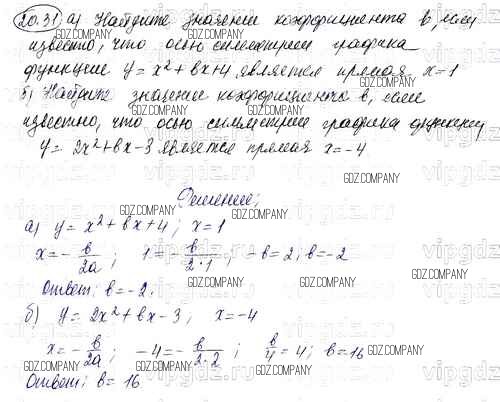 20.31 а) Найдите значение коэффициента b, если
известно, что осью симметрии графика
функции y = x² + bx + 4 является прямая x = 1
б) Найдите значение коэффициента b, если
известно, что осью симметрии графика функции
y = 2x² + bx - 3 является прямая x = -4
Решение;
а) y = x² + bx + 4; x = 1
x = - b/2a; 1 = - b/2·1; -b = 2; b = -2
Ответ: b = -2.
б) y = 2x² + bx - 3; x = -4
x = - b/2a; -4 = - b/2·2; b/4 = 4; b = 16
Ответ: b = 16